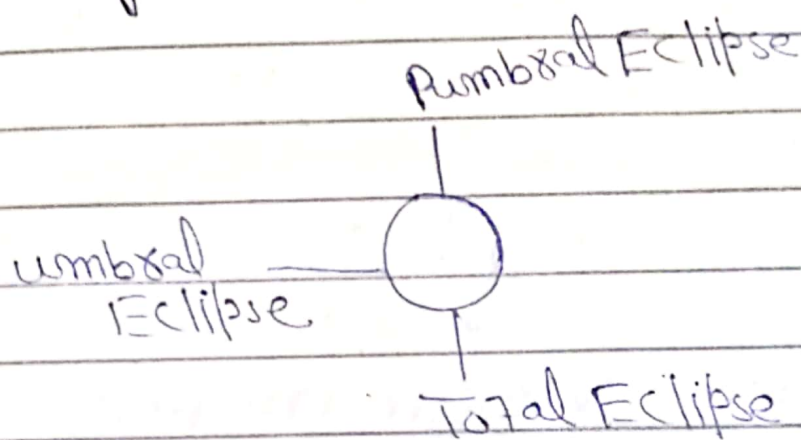 Pumbral Eclipse
umbral
Eclipse
Total Eclipse